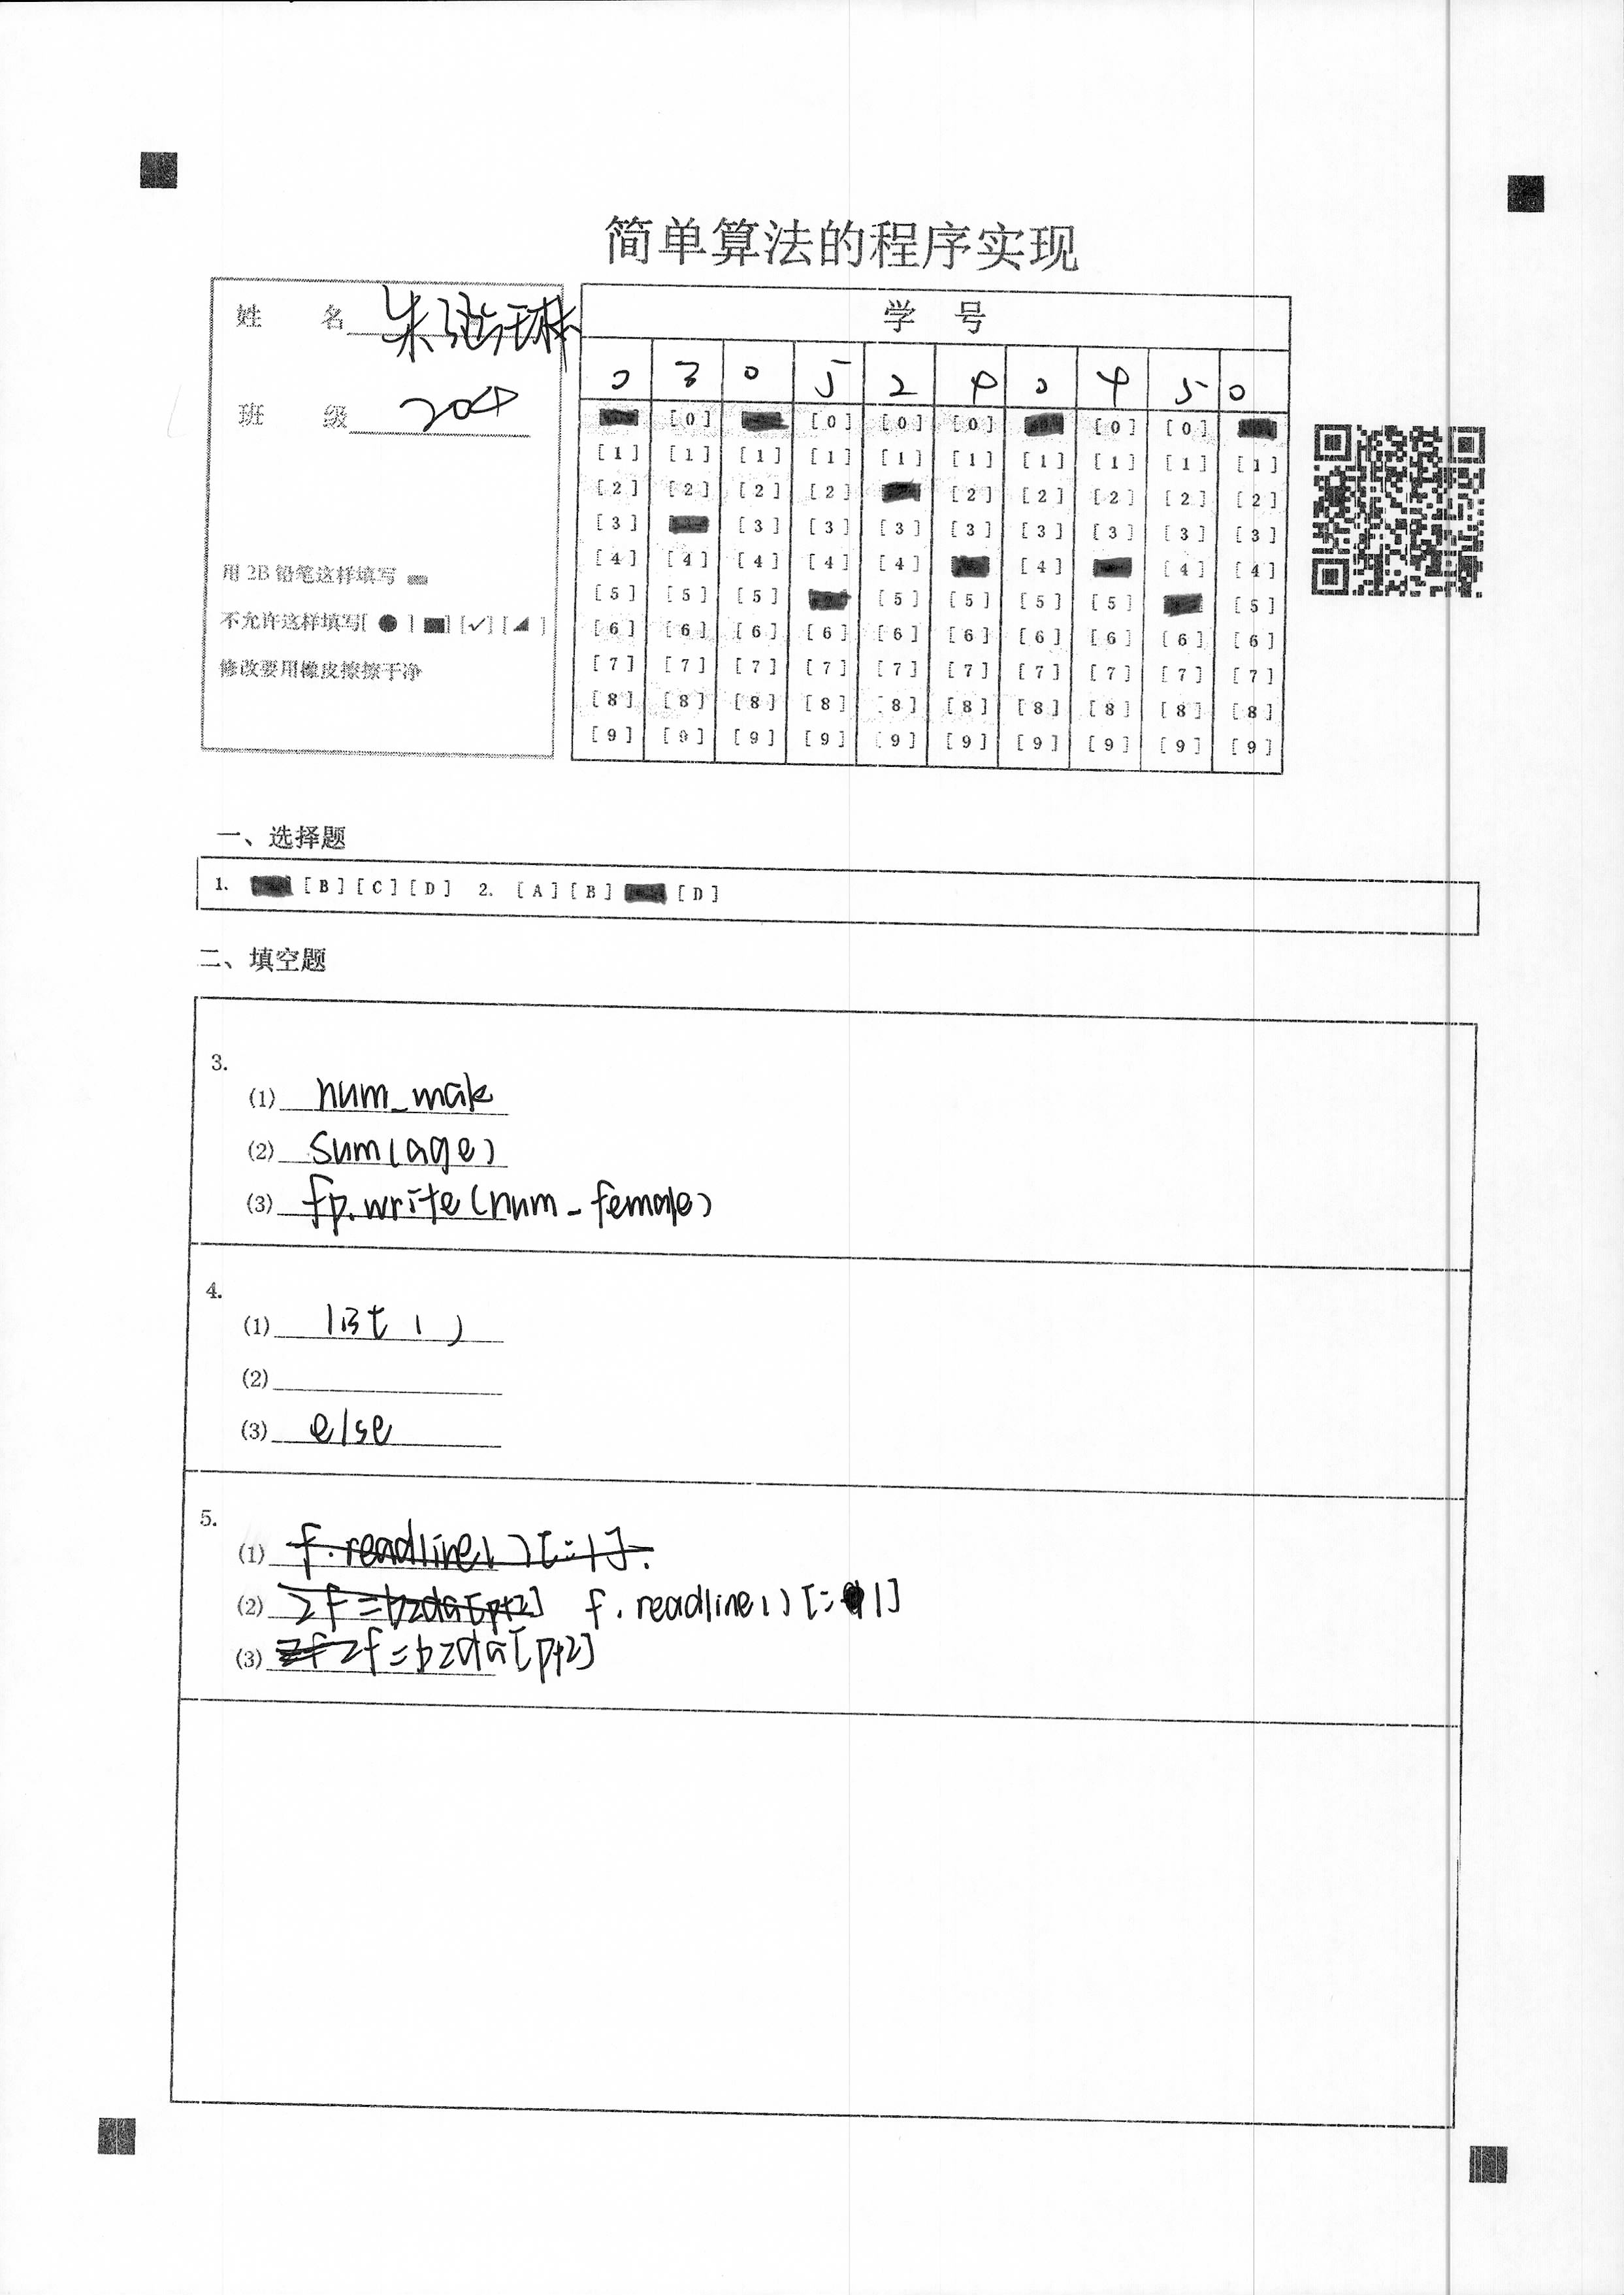 简单算法的程序实现
姓 名 朱
班 级 204
用 2B 铅笔这样填写
不允许这样填写[ ● ] [■] [✓] [◢ ]
修改要用橡皮擦擦干净
学 号
0 3 0 5 2 4 0 4 5 0
[0] [0] [0] [0] [0] [0]
[1] [1] [1] [1] [1] [1] [1] [1] [1] [1]
[2] [2] [2] [2] [2] [2] [2] [2] [2]
[3] [3] [3] [3] [3] [3] [3] [3] [3]
[4] [4] [4] [4] [4] [4] [4] [4]
[5] [5] [5] [5] [5] [5] [5] [5]
[6] [6] [6] [6] [6] [6] [6] [6] [6] [6]
[7] [7] [7] [7] [7] [7] [7] [7] [7] [7]
[8] [8] [8] [8] [8] [8] [8] [8] [8] [8]
[9] [9] [9] [9] [9] [9] [9] [9] [9] [9]
一、选择题
1. [B] [C] [D] 2. [A] [B] [D]
二、填空题
3.
(1) num_male
(2) sum(age)
(3) fp.write(num_female)
4.
(1) list ( )
(2)
(3) else
5.
(1) f.readline()[:-1]
(2) zf=bzda[p+2] f.readline()[:-1]
(3) zf zf=bzda[p+2]